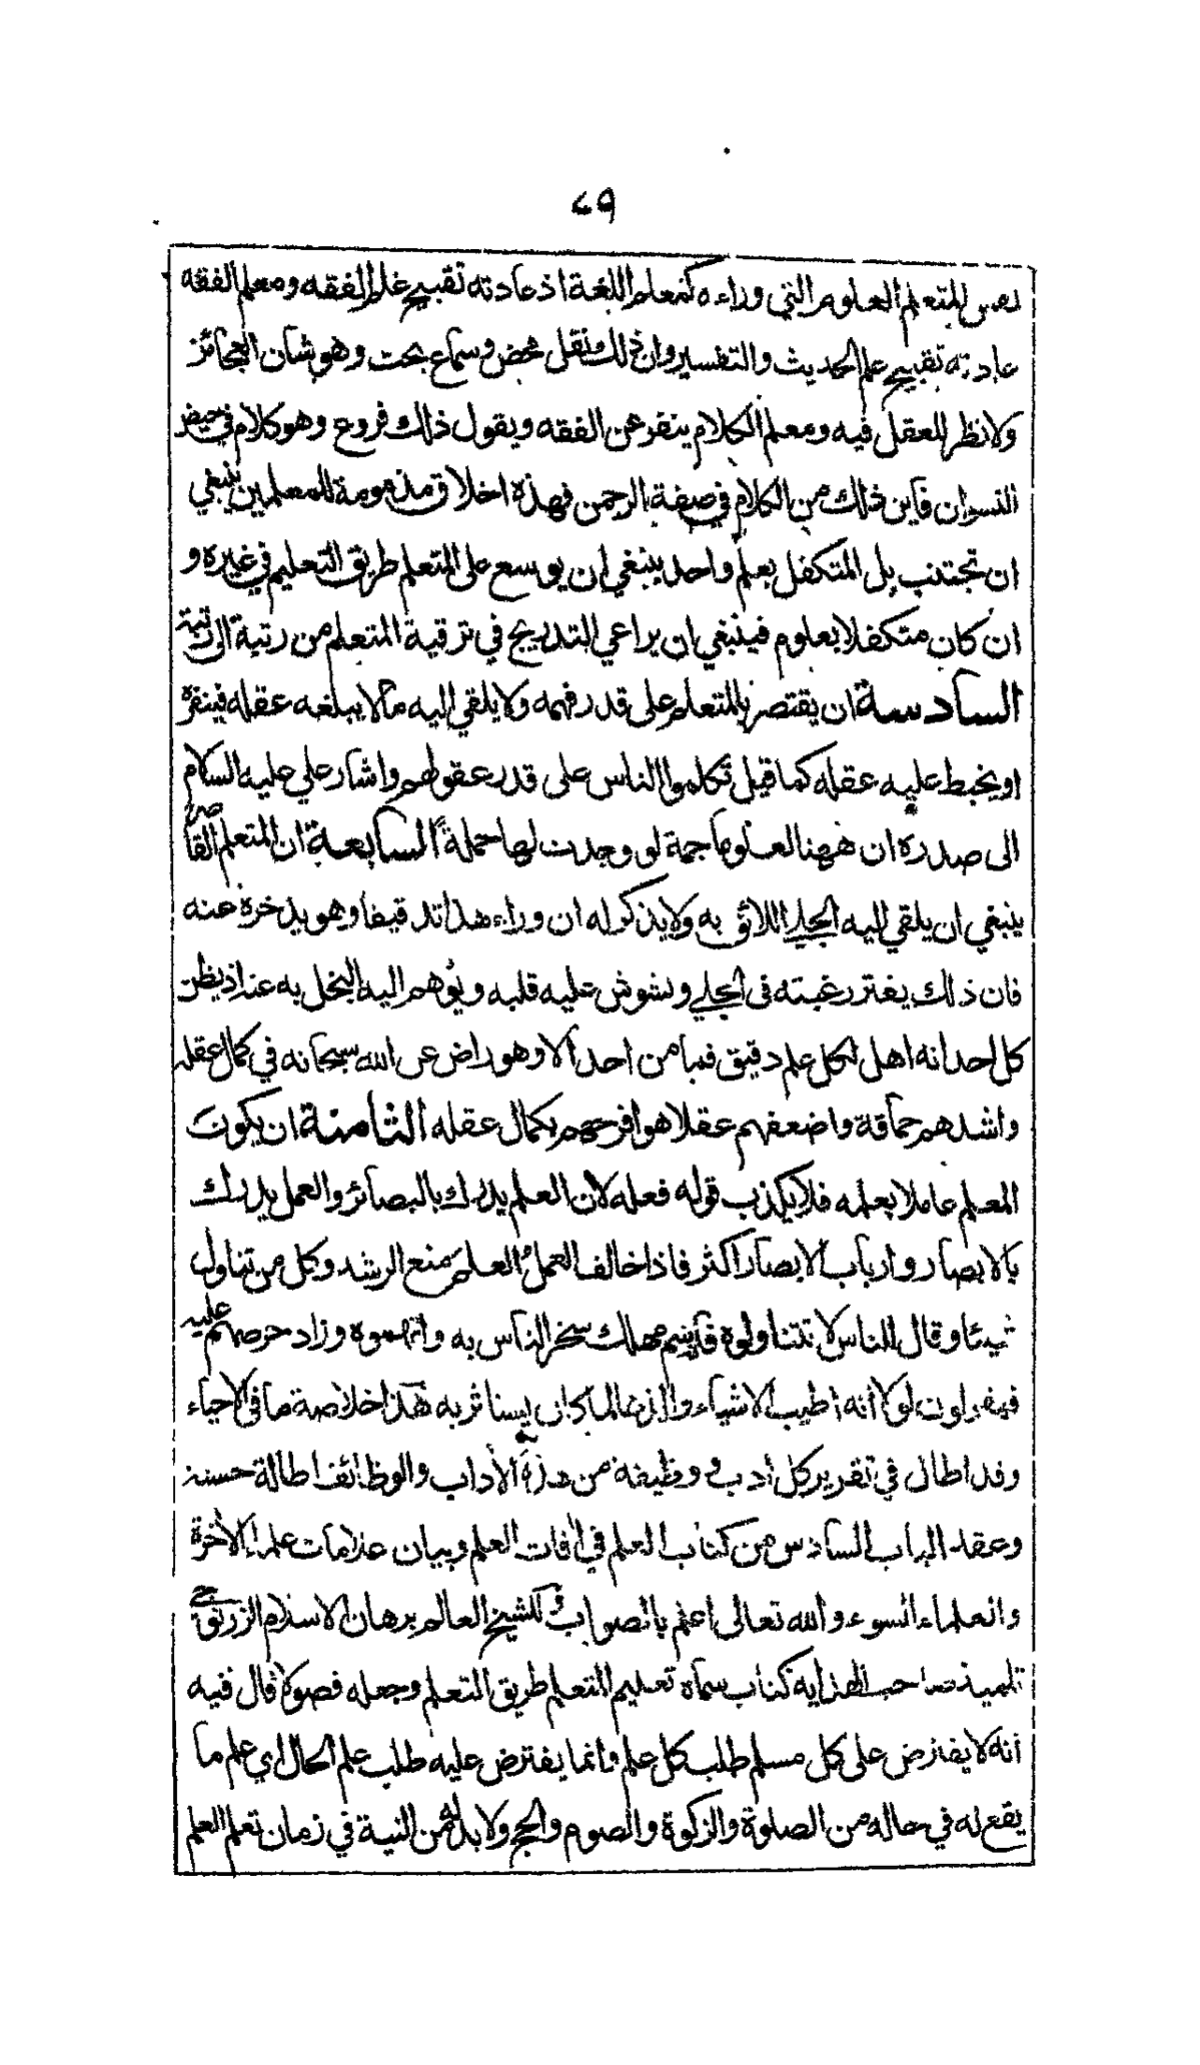 ٤٩
نفس المتعلم العلوم التي وراءه كمعلم اللغة اذ عادته تقبيح علم الفقه ومعلم الفقه
عادته تقبيح علم الحديث والتفسير وان ذلك نقل محض وسماع بحت وهو شان العجائز
ولا نظر للعقل فيه ومعلم الكلام ينفر عن الفقه ويقول ذلك فروع وهو كلام في حيض
النسوان فاين ذلك من الكلام في صفة الرحمن فهذه اخلاق مذمومة للمعلمين ينبغي
ان تجتنب بل المتكفل بعلم واحد ينبغي ان يوسع على المتعلم طريق التعليم في غيره و
ان كان متكفلا بعلوم فينبغي ان يراعي التدريج في ترقية المتعلم من رتبة الى رتبة
السادسة ان يقتصر بالمتعلم على قدر فهمه ولا يلقي اليه ما لا يبلغه عقله فينفره
او يخبط عليه عقله كما قيل تكلموا الناس على قدر عقولهم واشار علي عليه السلام
الى صدره ان ههنا لعلوما جمة لو وجدت لها حملةً السابعة ان المتعلم القاصر
ينبغي ان يلقي اليه الجلي اللائق به ولا يذكر له ان وراء هذا تدقيقا وهو يدخره عنه
فان ذلك يفتر رغبته في الجلي ويشوش عليه قلبه ويُوهم اليه البخل به عنه اذ يظن
كل احد انه اهل لكل علم دقيق فما من احد الا وهو راض عن الله سبحانه في كمال عقله
واشدهم حماقة واضعفهم عقلا هو افرحهم بكمال عقله الثامنة ان يكون
المعلم عاملا بعلمه فلا يكذب قوله فعله لان العلم يدرك بالبصائر والعمل يدرك
بالابصار وارباب الابصار اكثر فاذا خالف العملُ العلمَ منع الرشد وكل من تناول
شيئا وقال للناس لا تتناولوه فانه سم مهلك سخر الناس به واتهموه وزاد حرصهم عليه
فيقولون لولا أنه اطيب الاشياء والذها لما كان يستاثر به هذا خلاصة ما في الاحياء
وقد اطال في تقرير كل أدب ووظيفة من هذه الأداب والوظائف اطالة حسنة
وعقد الباب السادس من كتاب العلم في أفات العلم وبيان علامات علماء الأخرة
والعلماء السوء والله تعالى اعلم بالصواب وللشيخ العالم برهان الاسلام الزرنوجي
تلميذ صاحب الهداية كتاب سماه تعليم المتعلم طريق التعلم وجعله فصولا قال فيه
أنه لا يفترض على كل مسلم طلب كل علم وانما يفترض عليه طلب علم الحال اي علم ما
يقع له في حاله من الصلوة والزكوة والصوم والحج ولا بد له من النية في زمان تعلم العلم